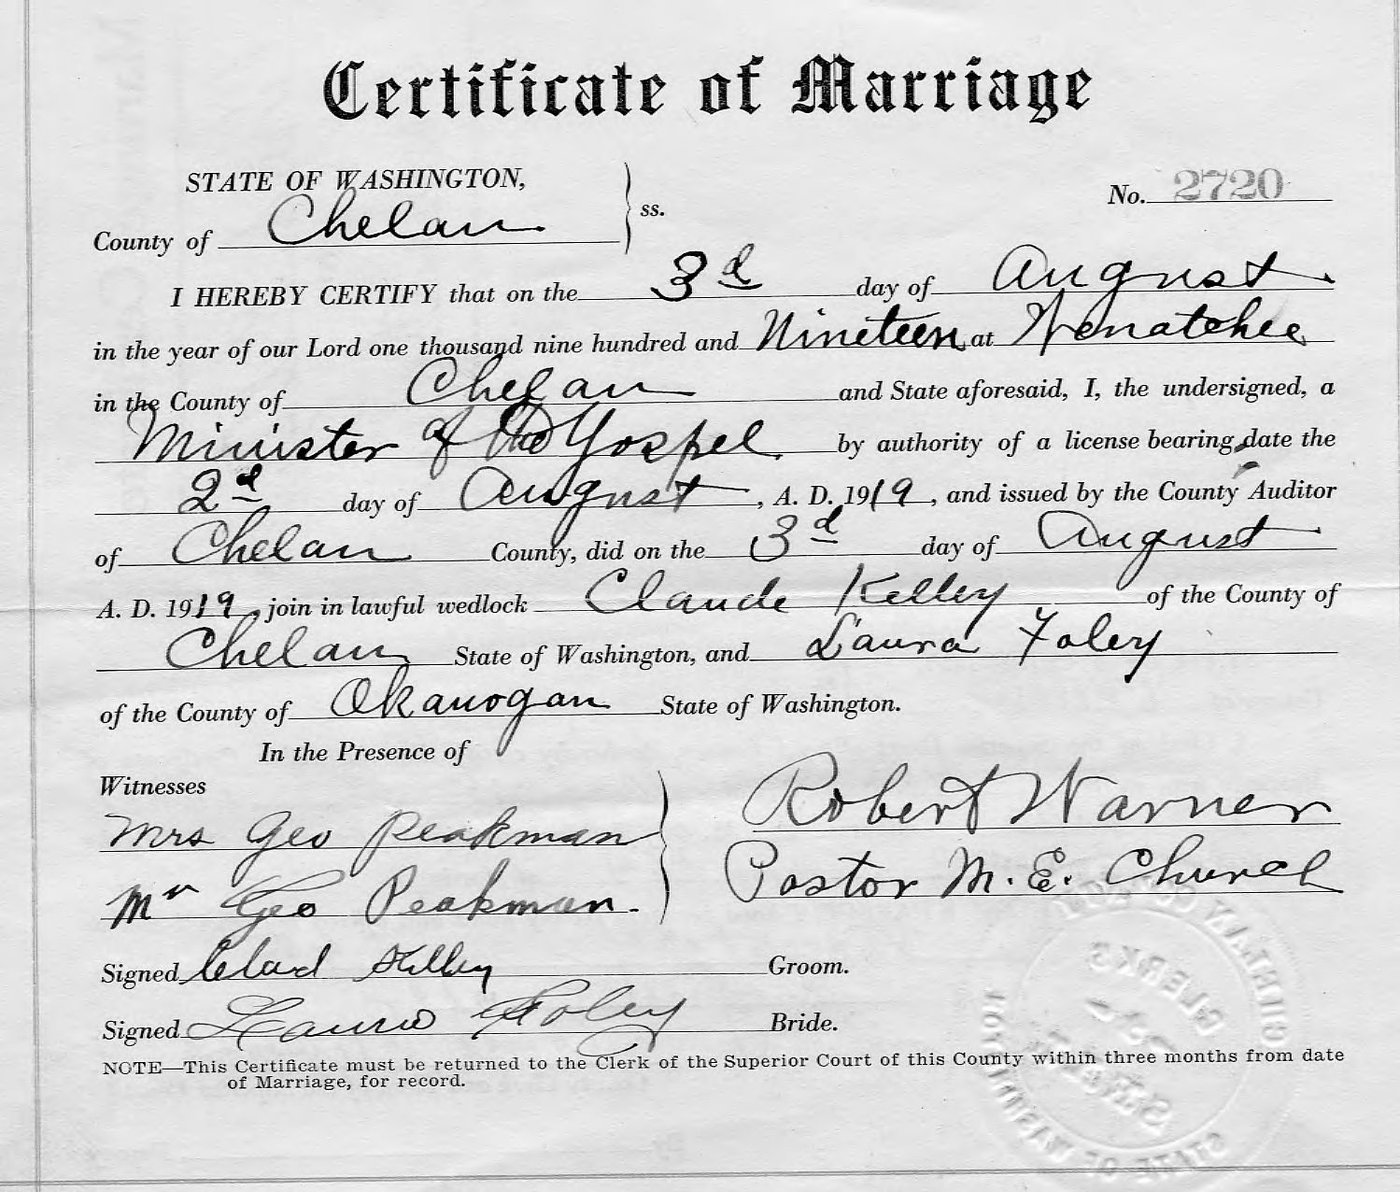 Certificate of Marriage
STATE OF WASHINGTON,
ss.
No. 2720
County of Chelan
I HEREBY CERTIFY that on the 3d day of August
in the year of our Lord one thousand nine hundred and Nineteen at Wenatchee
in the County of Chelan and State aforesaid, I, the undersigned, a
Minister of the Gospel by authority of a license bearing date the
2d day of August, A. D. 1919, and issued by the County Auditor
of Chelan County, did on the 3d day of August
A. D. 1919, join in lawful wedlock Claude Kelley of the County of
Chelan State of Washington, and Laura Foley
of the County of Okanogan State of Washington.
In the Presence of
Witnesses
Mrs Geo Peakman
Mr Geo Peakman.
Robert Warner
Pastor M. E. Church
Signed Clad Kelley Groom.
Signed Laura Foley Bride.
NOTE—This Certificate must be returned to the Clerk of the Superior Court of this County within three months from date
of Marriage, for record.